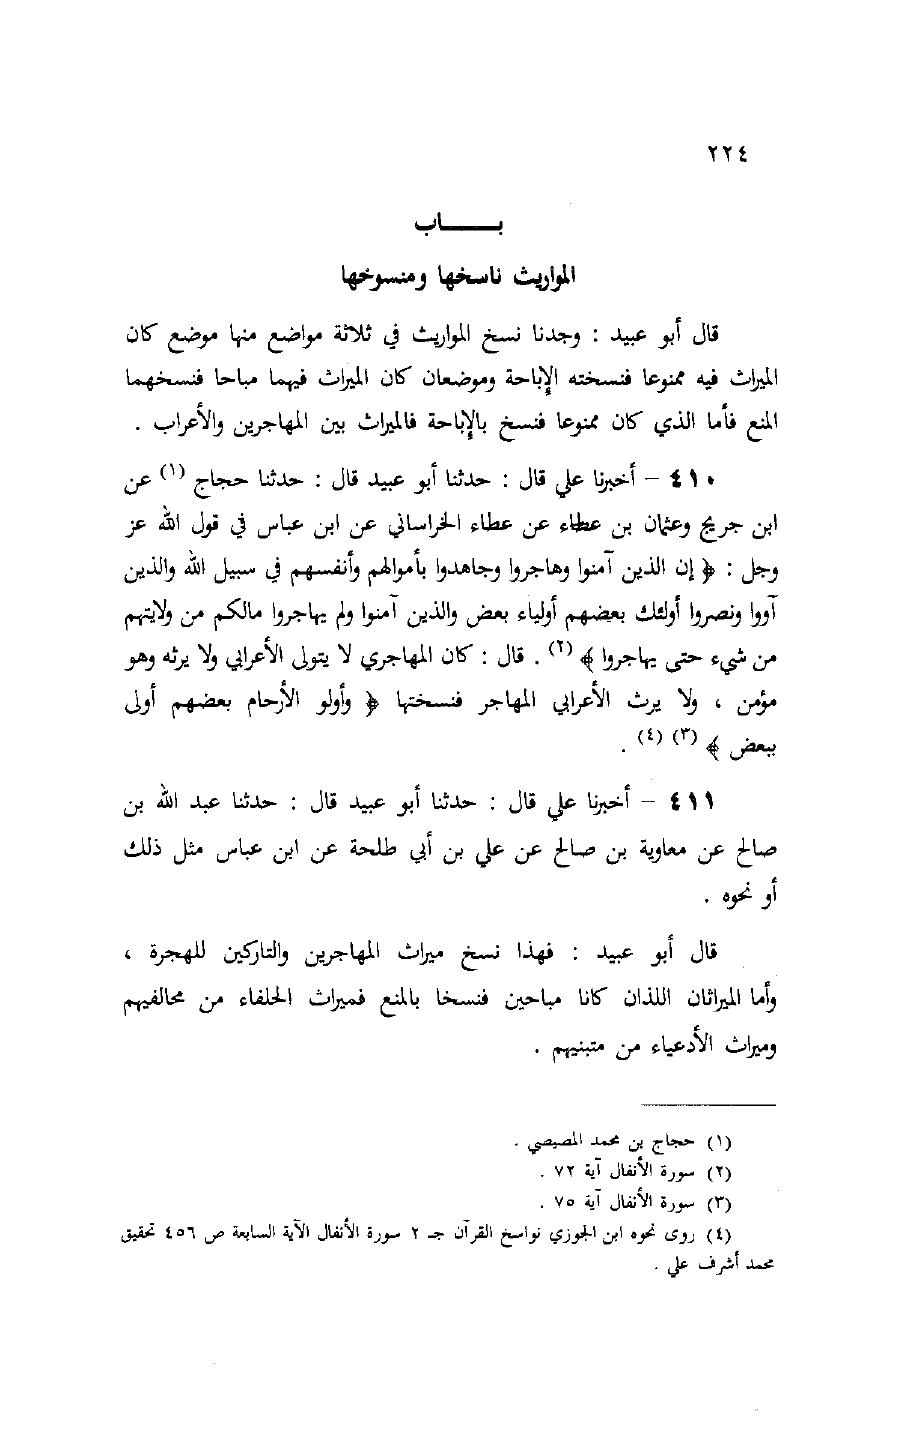 ٢٢٤
بـــــاب
المواريث ناسخها ومنسوخها
قال أبو عبيد : وجدنا نسخ المواريث في ثلاثة مواضع منها موضع كان
الميراث فيه ممنوعا فنسخته الإباحة وموضعان كان الميراث فيهما مباحا فنسخهما
المنع فأما الذي كان ممنوعا فنسخ بالإباحة فالميراث بين المهاجرين والأعراب .
٤١٠ – أخبرنا علي قال : حدثنا أبو عبيد قال : حدثنا حجاج (١) عن
ابن جريج وعثمان بن عطاء عن عطاء الخراساني عن ابن عباس في قول الله عز
وجل : ﴿ إن الذين آمنوا وهاجروا وجاهدوا بأموالهم وأنفسهم في سبيل الله والذين
آووا ونصروا أولئك بعضهم أولياء بعض والذين آمنوا ولم يهاجروا مالكم من ولايتهم
من شيء حتى يهاجروا ﴾ (٢) . قال : كان المهاجري لا يتولى الأعرابي ولا يرثه وهو
مؤمن ، ولا يرث الأعرابي المهاجر فنسختها ﴿ وأولو الأرحام بعضهم أولى
ببعض ﴾ (٣) (٤) .
٤١١ – أخبرنا علي قال : حدثنا أبو عبيد قال : حدثنا عبد الله بن
صالح عن معاوية بن صالح عن علي بن أبي طلحة عن ابن عباس مثل ذلك
أو نحوه .
قال أبو عبيد : فهذا نسخ ميراث المهاجرين والتاركين للهجرة ،
وأما الميراثان اللذان كانا مباحين فنسخا بالمنع فميراث الحلفاء من محالفيهم
وميراث الأدعياء من متبنيهم .
(١) حجاج بن محمد المصيصي .
(٢) سورة الأنفال آية ٧٢ .
(٣) سورة الأنفال آية ٧٥ .
(٤) روى نحوه ابن الجوزي نواسخ القرآن جـ ٢ سورة الأنفال الآية السابعة ص ٤٥٦ تحقيق
محمد أشرف علي .